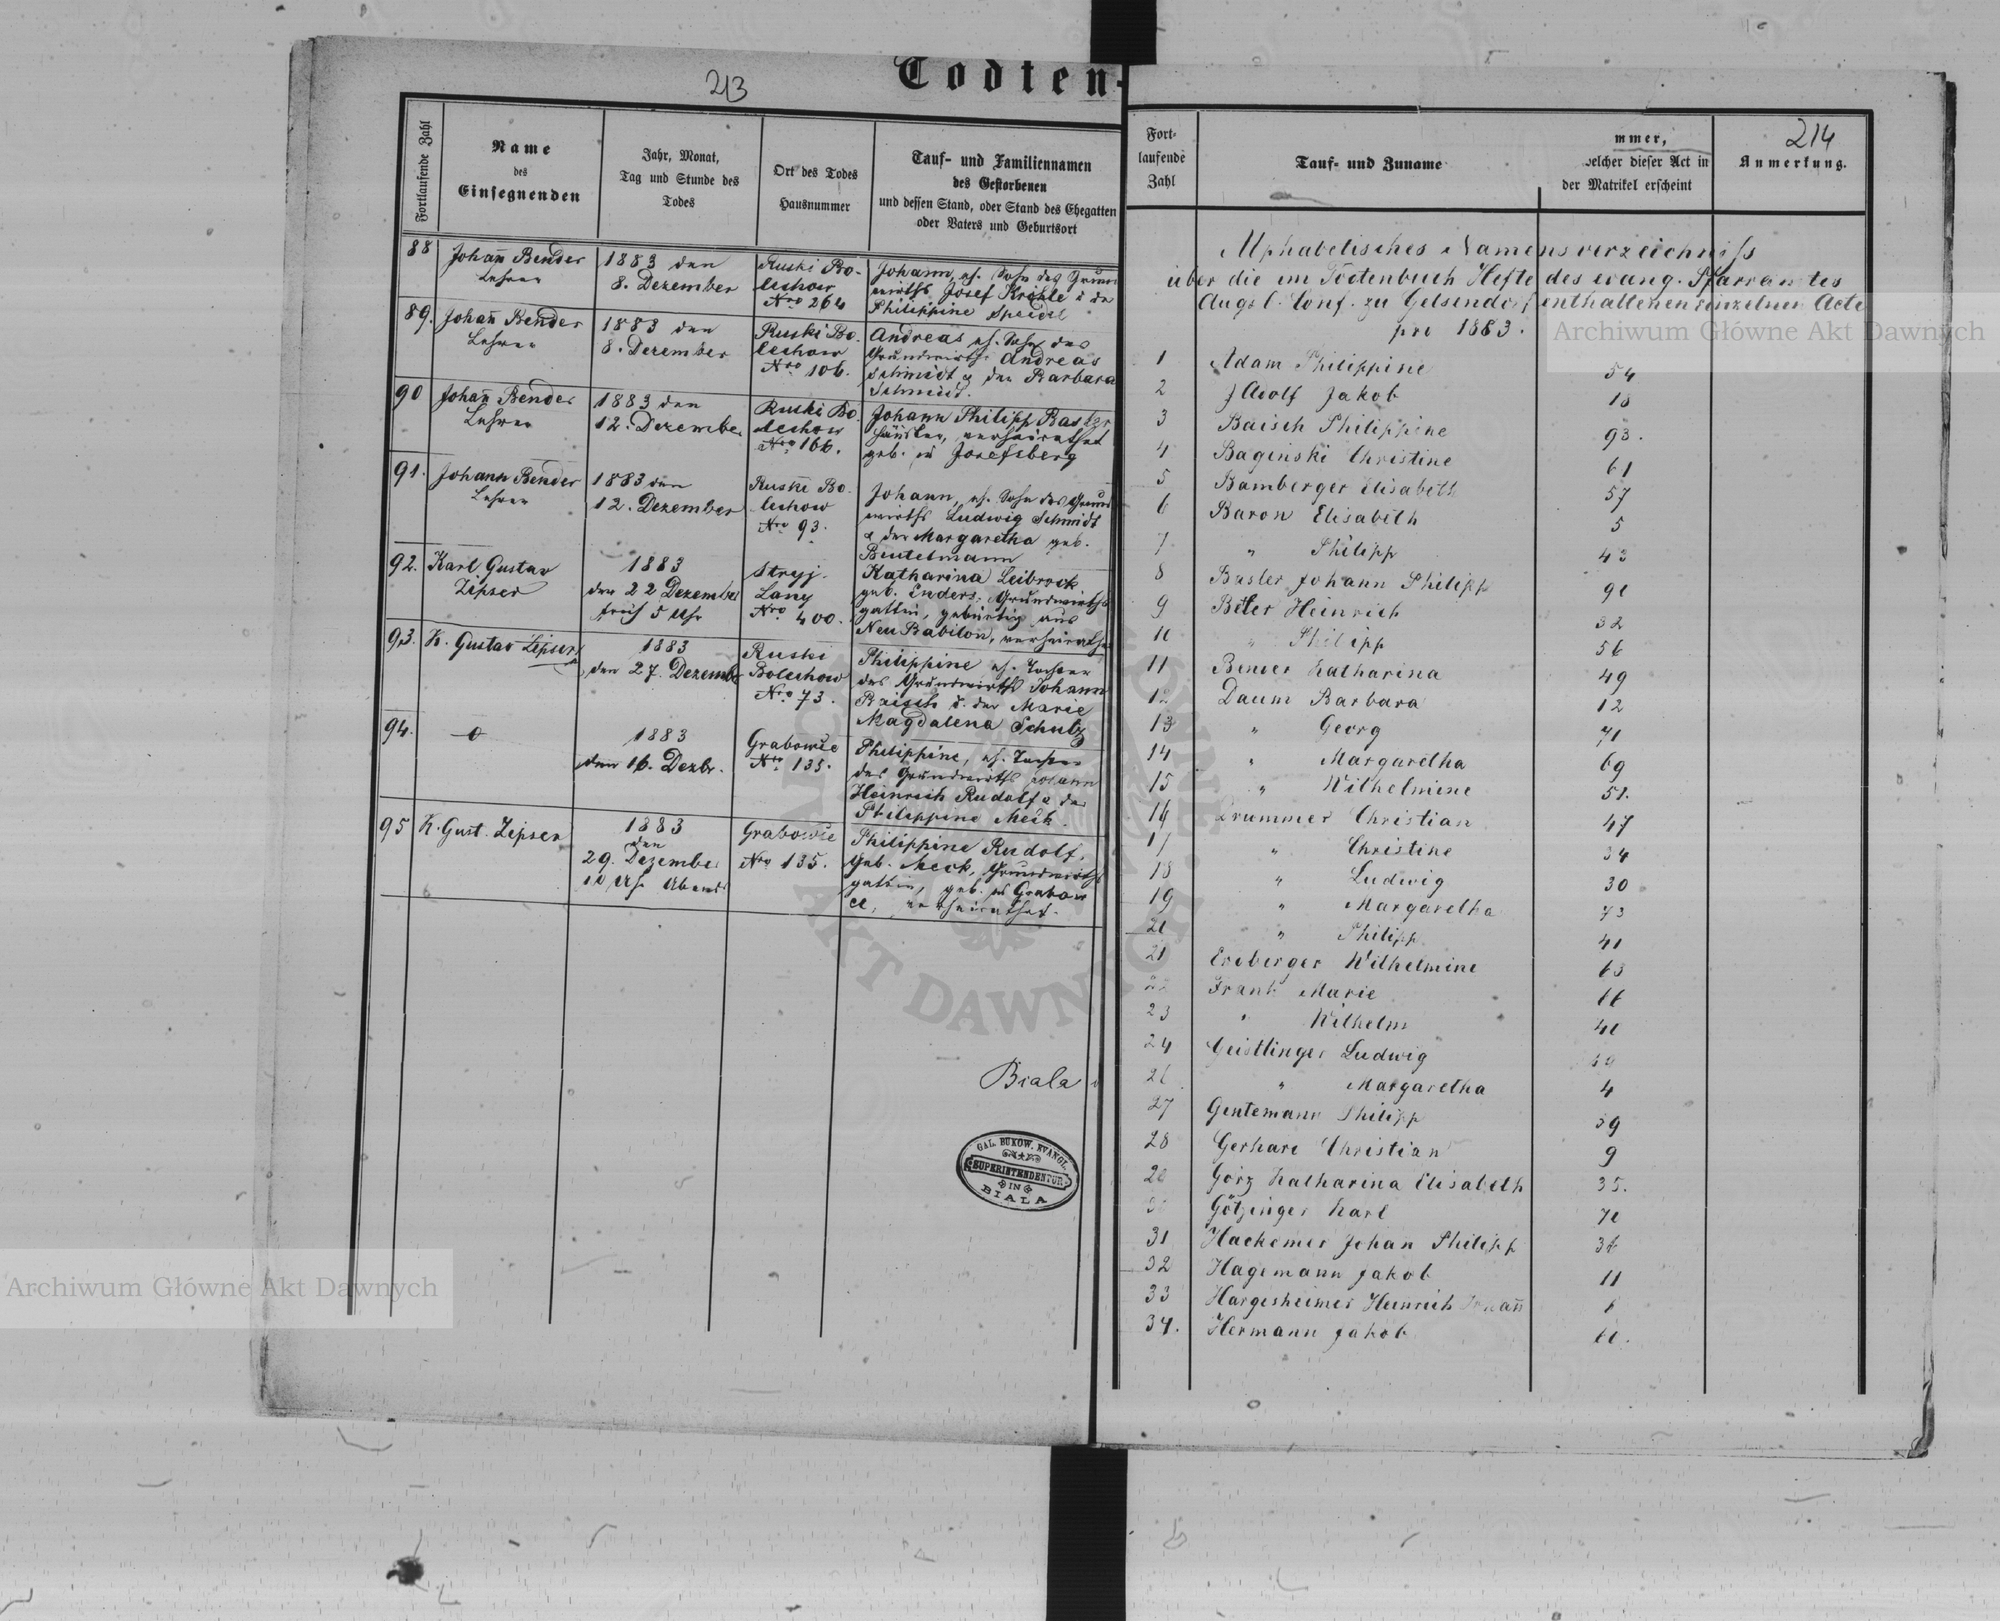 213
Todten-
Fortlaufende Zahl
Name
des
Einsegnenden
Jahr, Monat,
Tag und Stunde des
Todes
Ort des Todes
Hausnummer
Tauf- und Familiennamen
des Gestorbenen
und dessen Stand, oder Stand des Ehegatten
oder Vaters und Geburtsort
88
Johan̄ Bender
Lehrer
1883 den
8. Dezember
Ruski Bo-
lechow
Nro 264
Johann, eh. Sohn des Grund
wirths Josef Krähle u der
Philippine Speidel
89.
Johan̄ Bender
Lehrer
1883 den
8. Dezember
Ruski Bo.
lechow
Nro 106.
Andreas eh. Sohn des
Grundwirths Andreas
Schmidt u der Barbara
Schmied.
90
Johan̄ Bender
Lehrer
1883 den
12. Dezember
Ruski Bo.
lechow
Nro 166.
Johann Philipp Basler
Häusler, verheirathet
geb. in Josefsberg
91.
Johann Bender
Lehrer
1883 den
12. Dezember
Ruski Bo.
lechow
Nro 93.
Johann, eh. Sohn des Grund
wirths Ludwig Schmidt
u der Margaretha geb.
Beutelmann
92.
Karl Gustav
Zipser
1883
den 22 Dezember
früh 5 Uhr
Stryj.
Lany
Nro 400.
Katharina Leibrock
geb. Enders, Grundwirths
gattin, gebürtig aus
Neu Babilon, verheirathet
93.
K. Gustav Zipser
1883
den 27. Dezember
Ruski
Bolechow
Nro 73.
Philippine eh. Tochter
des Grundwirths Johann
Baisch u. der Marie
Magdalena Schulz
94.
1883
den 16. Dezbr.
Grabowce
Nro 135.
Philippine, eh. Tochter
des Grundwirths Johann
Heinrich Rudolf u der
Philippine Meck.
95
K. Gust. Zipser
1883
den
29. Dezember
10 Uhr Abends
Grabowce
Nro 135.
Philippine Rudolf,
geb. Meck, Grundwirths
gattin, geb. in Grabow
ce, verheirathet.
Biala
GAL. BUKOW. EVANGL.
SUPERINTENDENTUR
IN
BIALA
214
Fort-
laufende
Zahl
Tauf- und Zuname
mmer,
welcher dieser Act in
der Matrikel erscheint
Anmerkung.
Alphabetisches Namensverzeichniss
über die im Todtenbuch Hefte des evang. Pfarramtes
Augsb. Conf. zu Gelsendorf enthaltenen einzelnen Acte
pro 1883.
1 Adam Philippine 54
2 Adolf Jakob 18
3 Baisch Philippine 93.
4 Baginski Christine 61
5 Bamberger Elisabeth 57
6 Baron Elisabeth 5
7 " Philipp 43
8 Basler Johann Philipp 90
9 Beller Heinrich 32
10 " Philipp 56
11 Bender Katharina 49
12 Daum Barbara 12
13 " Georg 71
14 " Margaretha 69
15 " Wilhelmine 51.
16 Drummer Christian 47
17 " Christine 34
18 " Ludwig 30
19 " Margaretha 73
20 " Philipp 41
21 Erdberger Wilhelmine 63
22 Frank Marie
23 " Wilhelm 40
24 Geistlinger Ludwig
26 " Margaretha 4
27 Gentemann Philipp 59
28 Gerhard Christian 9
Görz Katharina Elisabeth 35.
Götzinger Karl 70
31 Hackemer Johan Philipp
32 Hagemann Jakob 11
33 Hargesheimer Heinrich Johan̄
34. Hermann Jakob
Archiwum Główne Akt Dawnych
Archiwum Główne Akt Dawnych